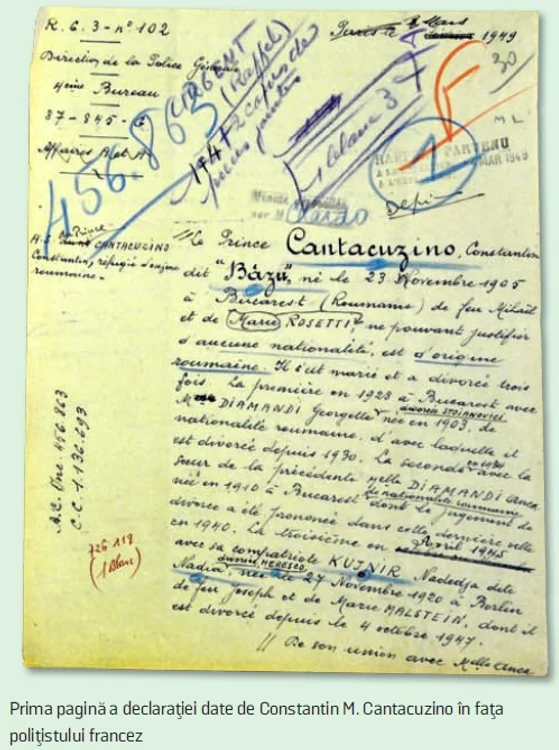 R.G.3 - n° 102
Paris le 2 Mars 1949
Direction de la Police Générale
4eme Bureau
87-845-E
Affaires A et A
URGENT
(Rappel)
2 copies de
456.863
1 blanc
30
ML
PARVENU
MAR 1949
A.s. du Prince CANTACUZINO
Constantin, réfugié d'origine
roumaine -
"Le Prince Cantacuzino, Constantin
dit "Bâzu", né le 23 Novembre 1905
à Bucarest (Roumanie) de feu Mihaïl
et de Marie ROSETTI, ne pouvant justifier
d'aucune nationalité, est d'origine
roumaine. Il s'est marié et a divorcé trois
fois. La première en 1923 à Bucarest avec
Melle DIAMANDI Georgette divorcée STOIANOVICI née en 1903, de
nationalité roumaine, d'avec laquelle il
est divorcé depuis 1930. La seconde en 1930 avec la
sœur de la précédente Melle DIAMANDI Anca
née en 1910 à Bucarest de nationalité roumaine dont le jugement de
divorce a été prononcé dans cette dernière ville
en 1940. La troisième en Avril 1945
avec sa compatriote KUJNIR Nadedja dite
Nadia divorcée HERESCO née le 27 Novembre 1920 à Berlin
de feu Joseph et de Marie MALSTEIN, dont il
est divorcé depuis le 4 octobre 1947.
// De son union avec Melle Anca
456.863
C.C. 1.136.693
726 118
(1 Blanc)
Prima pagină a declaraţiei date de Constantin M. Cantacuzino în faţa
poliţistului francez